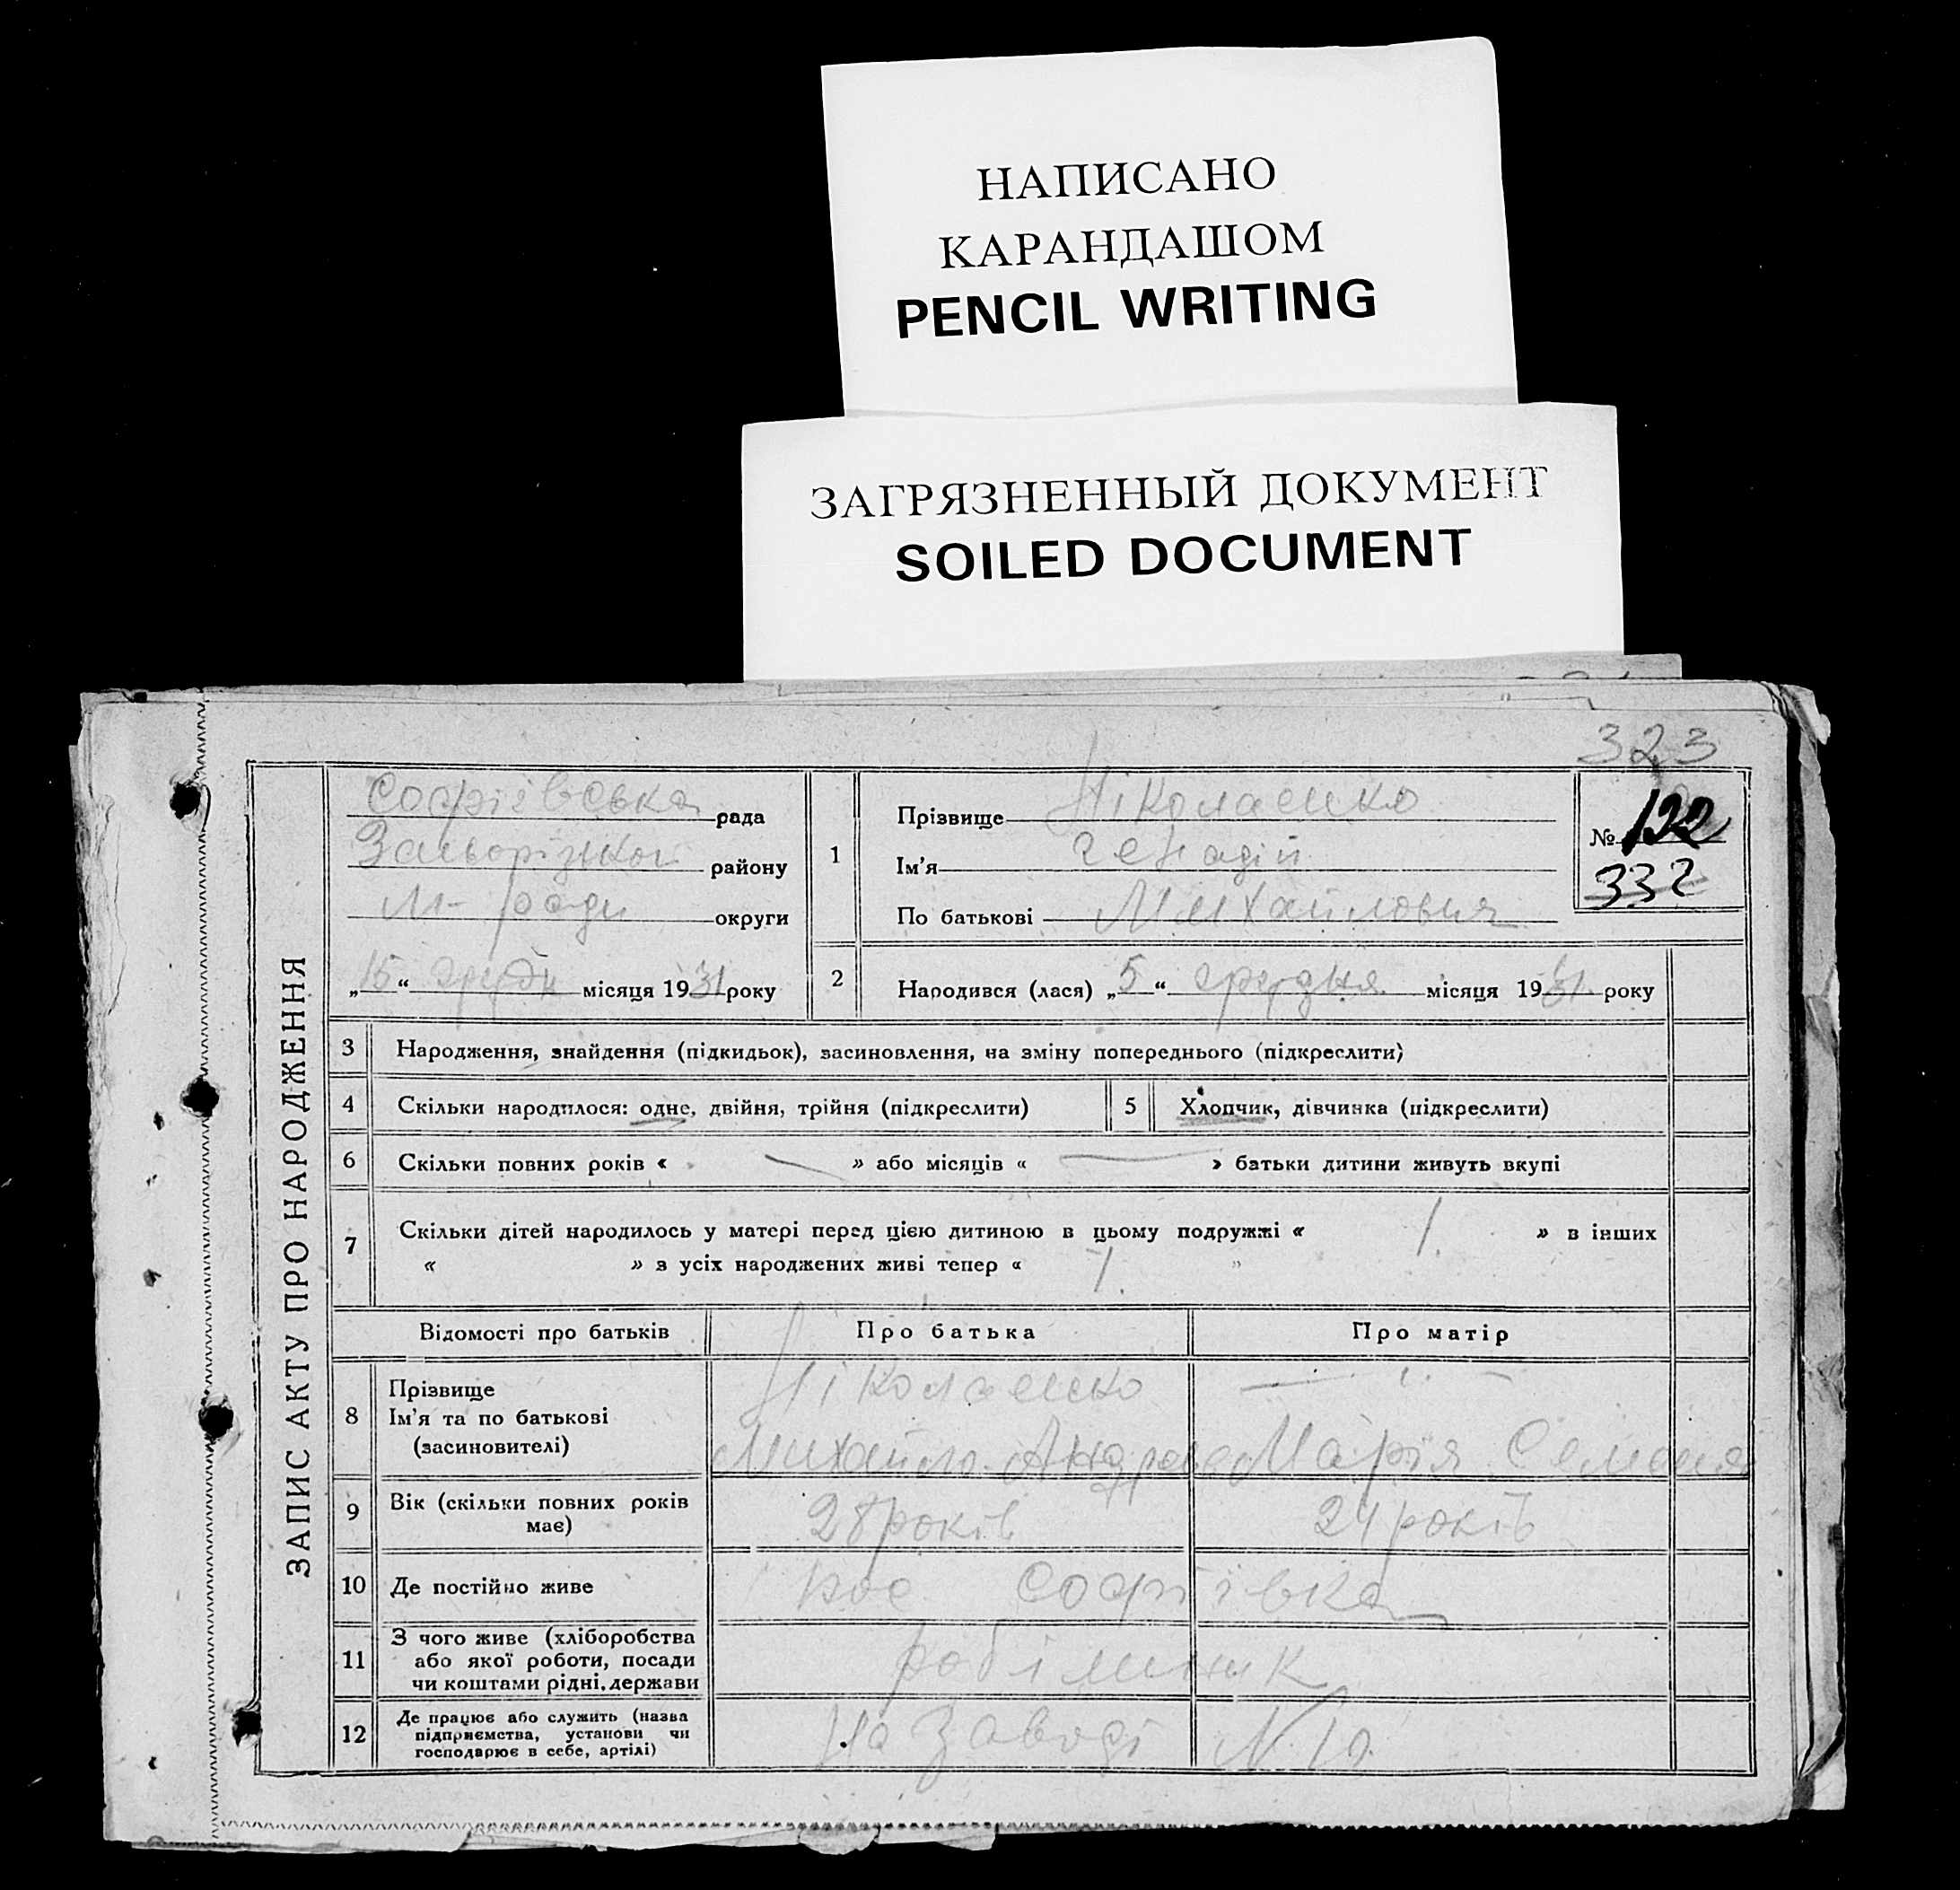 НАПИСАНО
КАРАНДАШОМ
PENCIL WRITING
ЗАГРЯЗНЕННЫЙ ДОКУМЕНТ
SOILED DOCUMENT
323
ЗАПИС АКТУ ПРО НАРОДЖЕННЯ
Софіївська рада
району
М-ради округи
„15“ грудн місяця 1931 року
1
Прізвище Ніколаенко
Ім'я Генадій
По батькові Михайлович
№ 122
332
2 Народився (лася) „5“ грудня місяця 1931 року
3 Народження, знайдення (підкидьок), засиновлення, на зміну попереднього (підкреслити)
4 Скільки народилося: одне, двійня, трійня (підкреслити)
5 Хлопчик, дівчинка (підкреслити)
6 Скільки повних років « — » або місяців « — » батьки дитини живуть вкупі
7 Скільки дітей народилось у матері перед цією дитиною в цьому подружжі « 1. » в інших
« » з усіх народжених живі тепер « 1. »
Відомості про батьків Про батька Про матір
8 Прізвище
Ім'я та по батькові
(засиновителі)
Ніколаенко — " —
Михайло Марія
9 Вік (скільки повних років
має)
28 років 24 років
10 Де постійно живе
пос Софіївка
11 З чого живе (хліборобства
або якої роботи, посади
чи коштами рідні, держави
робітник
12 Де працює або служить (назва
підприємства, установи чи
господарює в себе, артілі)
На Заводі N 10.